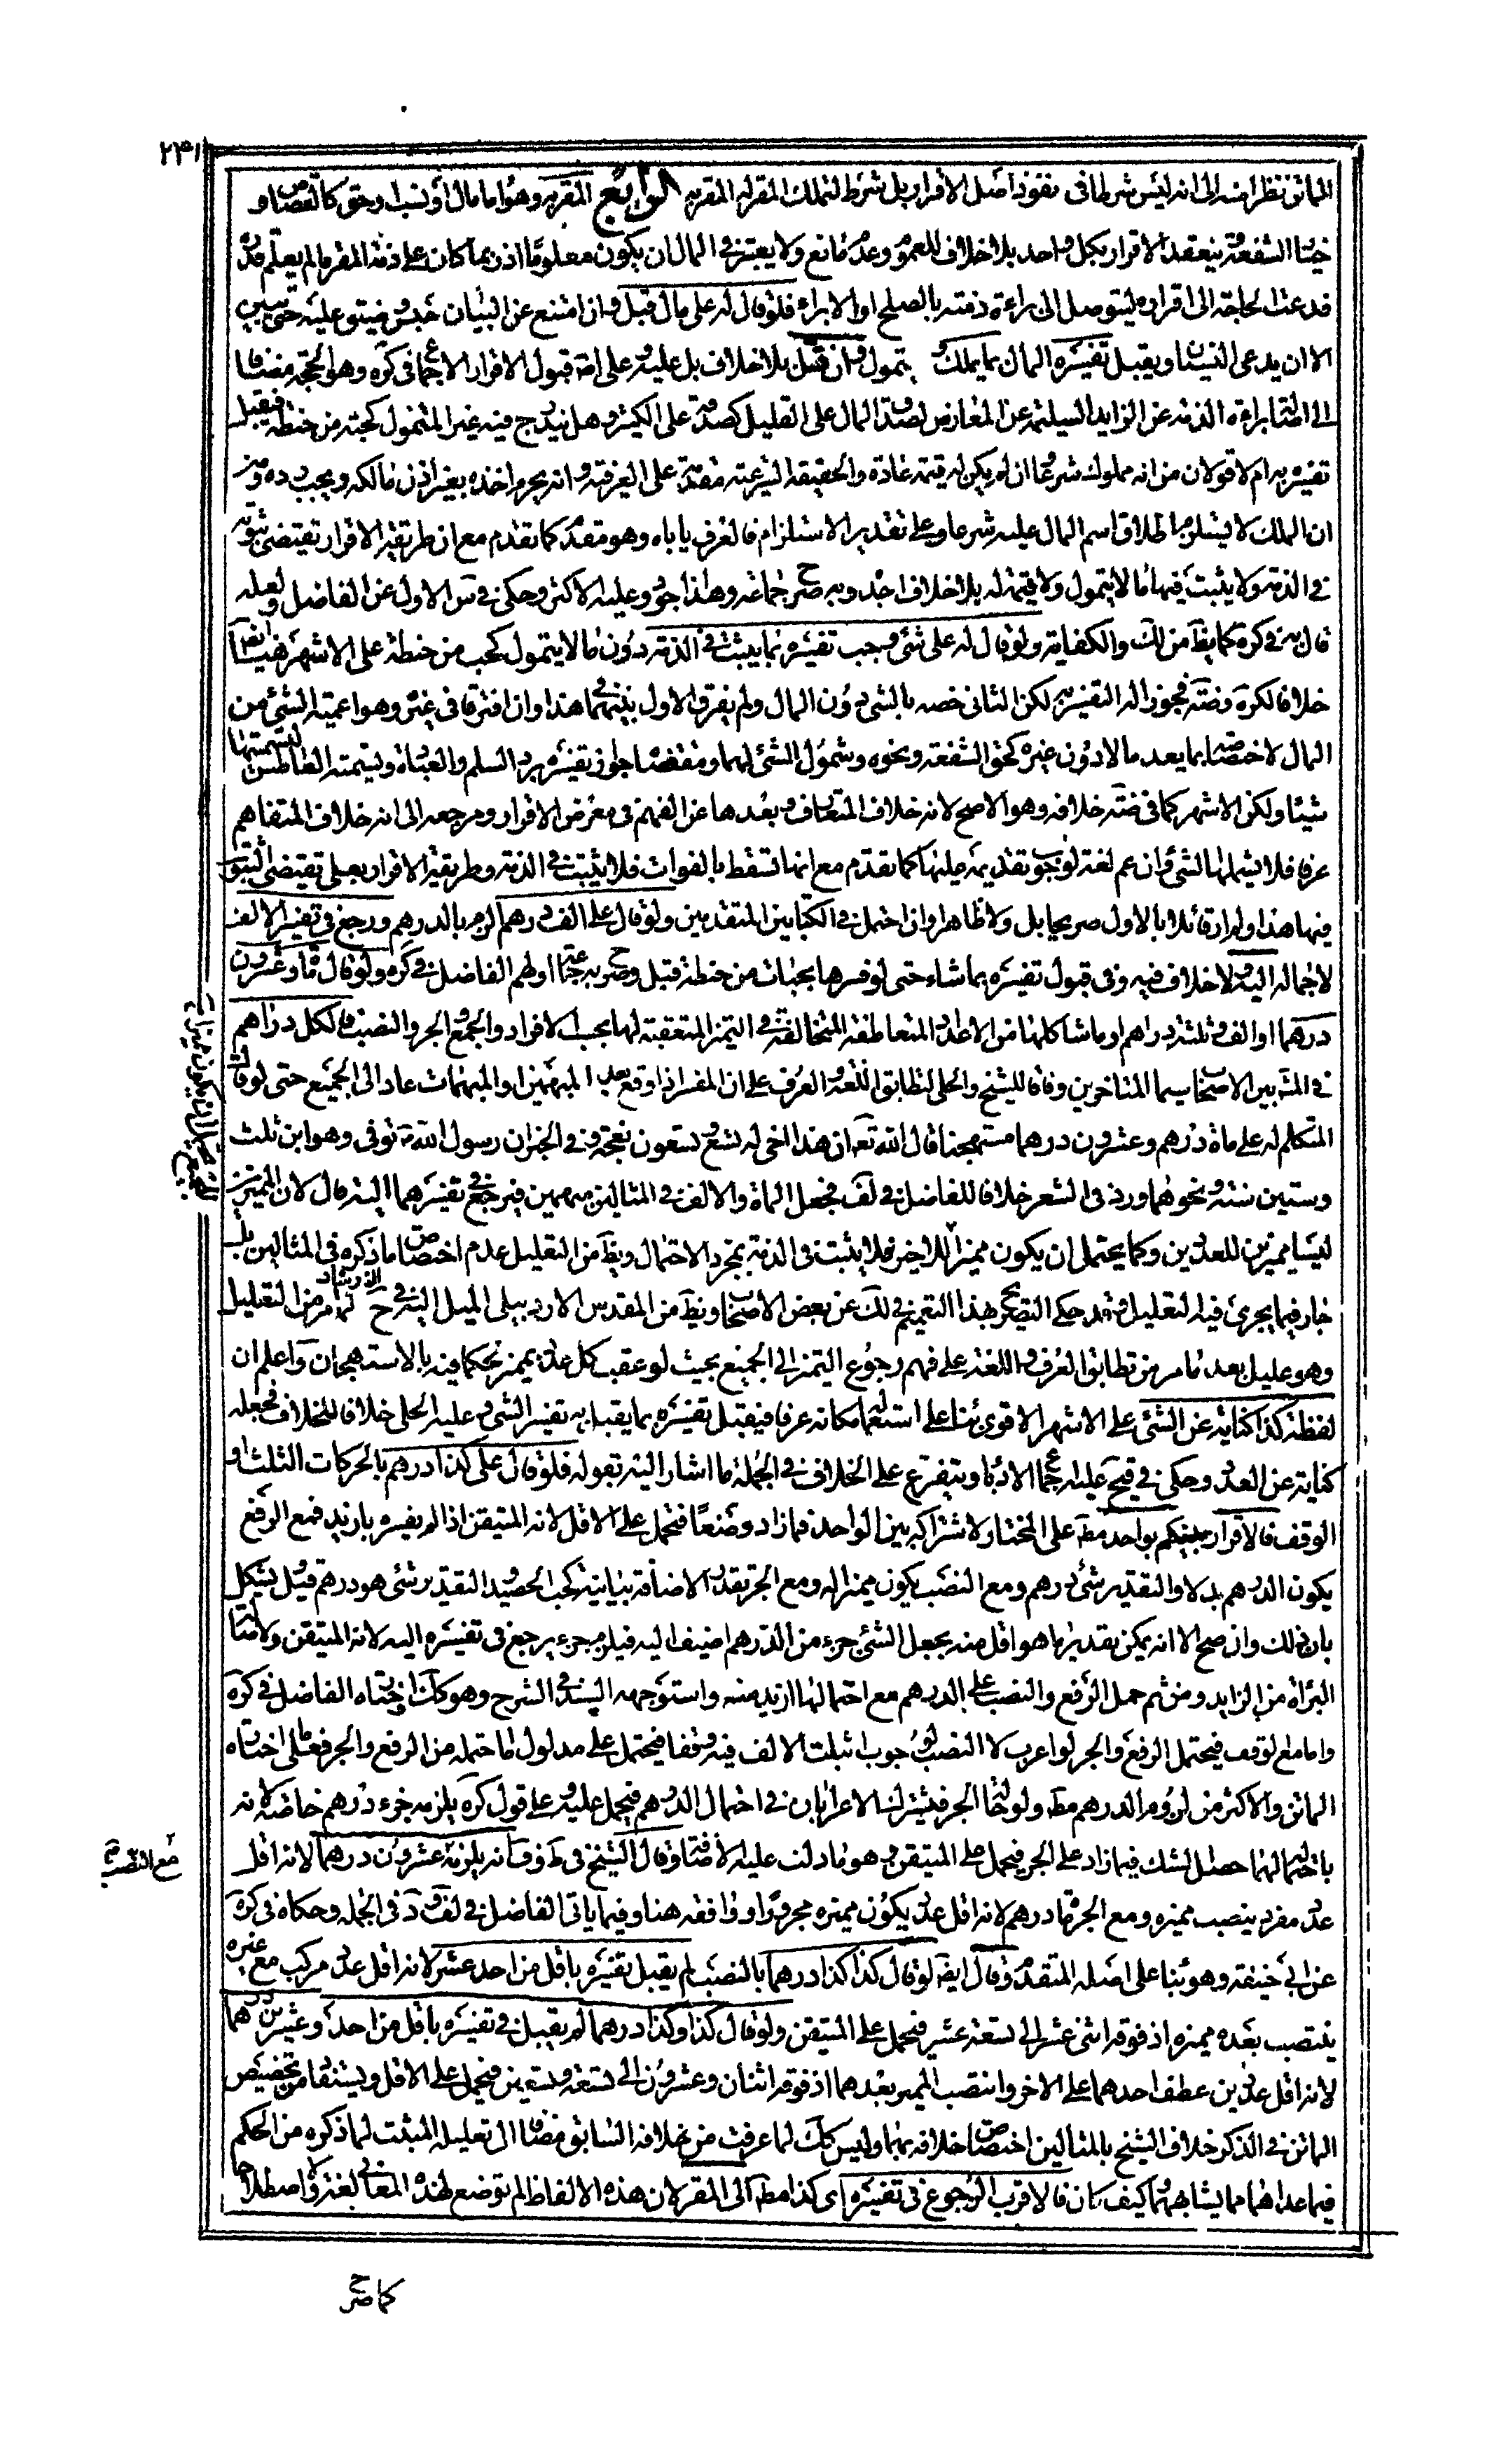 ۲۴۱
الماتن نظرا منه الى انه ليس شرطا فى نفوذ اصل الاقرار بل شرط لتملك المقر له المقر به الرابع المقر به وهو اما مال او نسب او حق كالقصاص و
خيار الشفعة ينعقد الاقرار بكل واحد بلا خلاف للعموم وعدم مانع ولا يعتبر فى المال ان يكون معلوما اذ ربما كان على ذمة المقر ما لم يعلم قدره
فدعت الحاجة الى اقراره ليتوصل الى براءة ذمته بالصلح او الابراء فلو قال له على مال قبل وان امتنع عن البيان حبس وضيق عليه حتى يبين
الا ان يدعى النسيان ويقبل تفسيره المال بما يملك ويتمول وان قل بلا خلاف بل عليه وعلى اصل قبول الاقرار الاجماع فى كره وهو الحجة مضافا
الى اصالة براءة الذمة عن الزايد السليمة عن المعارض لصدق المال على القليل كصدقه على الكثير وهل يندرج فيه غير المتمول كحبة من حنطة فيقبل
تفسيره به ام لا قولان من انه مملوك شرعا ان لم يكن له قيمة عادة والحقيقة الشرعية مقدمة على العرفية وانه يحرم اخذه بغير اذن مالكه ويجب رده ومن
ان الملك لا يستلزم اطلاق اسم المال عليه شرعا وعلى تقدير الاستلزام فالعرف ياباه وهو مقدم كما تقدم مع ان طريقة الاقرار تقتضى ثبوته
فى الذمة ولا يثبت فيها ما لا يتمول ولا قيمة له بلا خلاف اجده وبه صرح جماعة وهذا اجود وعليه الاكثر وحكى فى س الاول عن الفاضل ولعله
قال به فى كره كما يظ من لك والكفاية ولو قال له على شئ وجب تفسيره بما يثبت فى الذمة دون ما لا يتمول كحب من حنطة على الاشهر هنا ايضا
خلافا لكره وضة فجوزا له التفسير به لكن الثانى خصه بالشئ دون المال ولم يفرق الاول بينهما فى هذا وان افترقا فى غيره وهو اعمية الشئ من
المال لاختصاصه بما يعد مالا دون غيره كحق الشفعة ونحوه وشمول الشئ لهما ومقتضاه جواز تفسيره برد السلام والعيادة وتسمية العاطس لتسميتها
شيئا ولكن الاشهر كما فى ضة خلافه وهو الاصح لانه خلاف المتعارف وبعدها عن الفهم فى معرض الاقرار ومرجعه الى انه خلاف المتفاهم
عرفا فلا يشملها الشئ وان عم لغة لوجوب تقديمه عليها كما تقدم مع انها تسقط بالفوات فلا يثبت فى الذمة وطريقة الاقرار بعلى تقتضى الثبوت
فيها هذا ولم ار قائلا بالاول صريحا بل ولا ظاهرا وان احتمل فى الكتابين المتقدمين ولو قال على الف ودرهم الزم بالدرهم ورجع فى تفسير الالف
لاجماله اليه ولا خلاف فيه وفى قبول تفسيره بما شاء حتى لو فسرها بحبات من حنطة قبل وصرح به جماعة اولهم الفاضل فى كره ولو قال مأة وعشرون
درهما او الف وثلثة دراهم او ما شاكلها من الاعداد المتعاطفة المتخالفة فى التميز المتعقبة لها بحسب الافراد والجمع والجر والنصب فالكل دراهم
فى المشهور بين الاصحاب سيما المتاخرين وفاقا للشيخ والحلى لتطابق اللغة والعرف على ان المفسر اذا وقع بعد المبهمين او المبهمات عاد الى الجميع حتى لو قال
المتكلم له على مأة درهم وعشرون درهما مستهجنا قال الله تعالى ان هذا اخى له تسع وتسعون نعجة وفى الخبر ان رسول الله ص توفى وهو ابن ثلث
وستين سنة ونحوهما ورد فى الشعر خلافا للفاضل فى لف فجعل المأة والالف فى المثالين مبهمين فيرجع فى تفسيرهما اليه قال لان المميزين
ليسا مميزين للعددين وكما يحتمل ان يكون مميزا للاخير فلا يثبت فى الذمة بمجرد الاحتمال ويظ من التعليل عدم اختصاص ما ذكره فى المثالين بل
جار فيما يجرى فيه التعليل وقد حكى التصريح بهذا التعميم فى لك عن بعض الاصحاب ويظ من المقدس الاردبيلى الميل اليه فى ح الارشاد لما مر من التعليل
وهو عليل بعد ما مر من تطابق العرف واللغة على فهم رجوع التميز الى الجميع بحيث لو عقب كل عدد بمميز لحكما فيه بالاستهجان واعلم ان
لفظة كذا كناية عن الشئ على الاشهر الاقوى بناء على استعماله مكانه عرفا فيقبل تفسيره بما يقبل به تفسير الشئ وعليه الحلى خلافا للخلاف فجعله
كناية عن العدد وحكى فى قيح عليه اجماع الادباء ويتفرع على الخلاف فى الجملة ما اشار اليه بقوله فلو قال على كذا درهم بالحركات الثلث او
الوقف فالاقرار بواحد مط على المختار لاشتراكه بين الواحد فما زاد وضعا فيحمل على الاقل لانه المتيقن اذا لم يفسره بازيد فمع الرفع
يكون الدرهم بدلا والتقدير شئ درهم ومع النصب يكون مميزا له ومع الجر تقدر الاضافة بيانية كحب الحصيد والتقدير شئ هو درهم قيل يشكل
بان ذلك وان صح الا انه يمكن تقدير ما هو اقل منه بجعل الشئ جزء من الدرهم اضيف اليه فيلزم جزء يرجع فى تفسيره اليه لانه المتيقن ولاصالة
البراءة من الزايد ومن ثم حمل الرفع والنصب على الدرهم مع احتمالهما ازيد منه واستوجهه السيد فى الشرح وهو كك واختاره الفاضل فى كره
واما مع الوقف فيحتمل الرفع والجر لو اعرب لا النصب لوجوب اثبات الالف فيه وقفا فيحتمل على مدلول ما احتمله من الرفع والجر فعلى ما اختاره
الماتن والاكثر من لزوم الدرهم مط ولو حالة الجر فيشترك الاعرابان فى احتمال الدرهم فيحمل عليه وعلى قول كره يلزمه جزء درهم خاصة لانه
باحتمالهما حصل الشك فيما زاد على الجر فيحمل على المتيقن وهو ما دلت عليه الاضافة وقال الشيخ فى ط وف انه يلزمه عشرون درهما لانه اقل
عدد مفرد ينصب مميزه ومع الجر مأة درهم لانه اقل عدد يكون مميزه مجرورا ووافقه هنا وفيما ياتى الفاضل فى لف ود فى الجملة وحكاه فى كره
عن ابى حنيفة وهو بناء على اصله المتقدم وقال ايضا لو قال كذا كذا درهما بالنصب لم يقبل تفسيره باقل من احد عشر لانه اقل عدد مركب مع غيره
ينتصب بعده مميزه اذ فوقه اثنى عشر الى تسعة عشر فيحمل على المتيقن ولو قال كذا وكذا درهما لم يقبل فى تفسيره باقل من احد وعشرين درهما
لانه اقل عددين عطف احدهما على الاخر وانتصب المميز بعدهما اذ فوقه اثنان وعشرون الى تسعة وتسعين فيحمل على الاقل ويستفاد من تخصيص
الماتن فى الذكر خلاف الشيخ بالمثالين اختصاص خلافه بهما وليس كك لما عرفت من خلافه السابق مضافا الى تعليله المثبت لما ذكره من الحكم
فيما عداهما مما يشابههما وكيف كان فالاقرب الرجوع فى تفسيره اى كذا مط الى المقر لان هذه الالفاظ لم توضع لهذه المعانى لغة ولا اصطلاحا
مع النصب
كما صرح